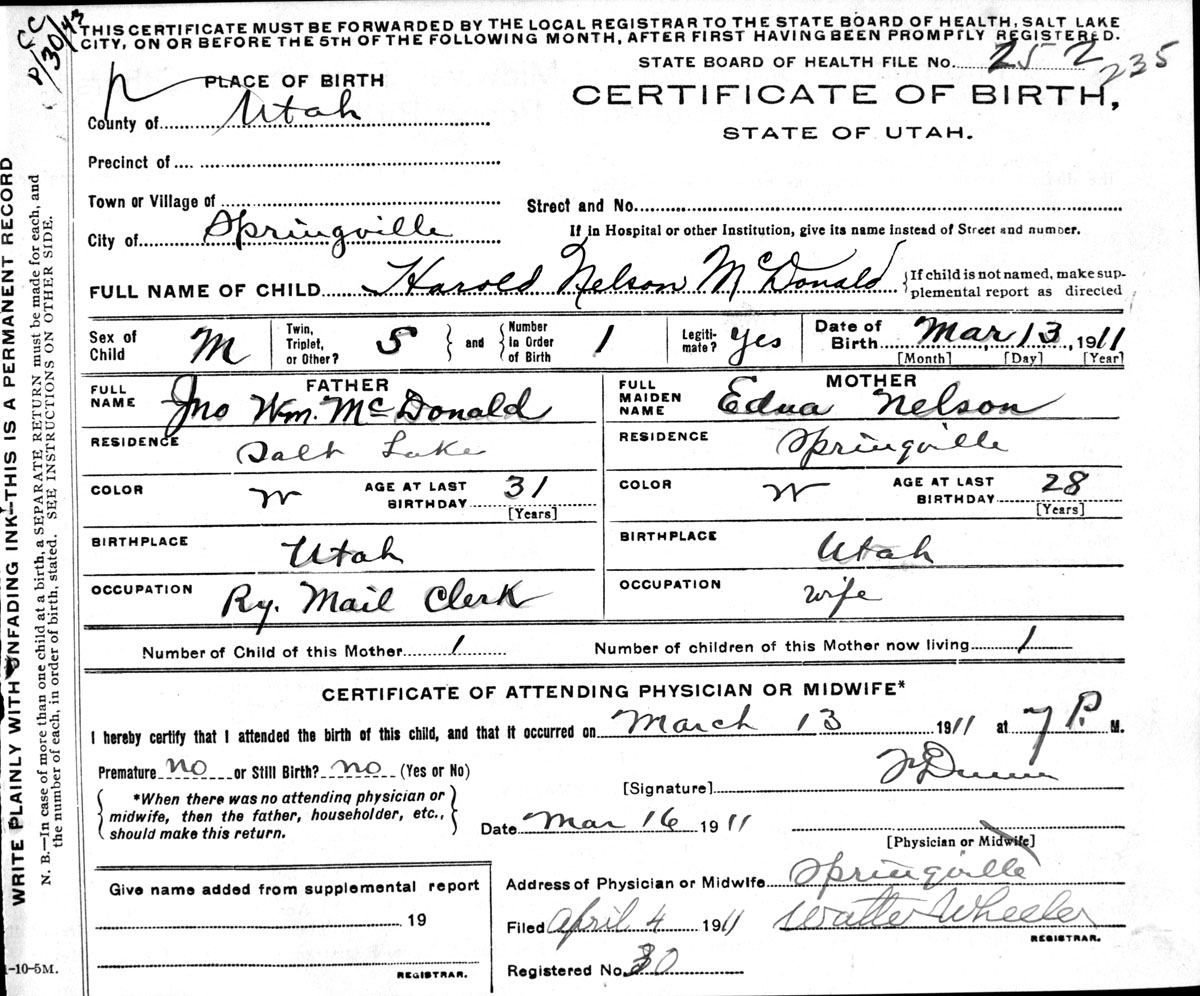 CC
P/30/43
THIS CERTIFICATE MUST BE FORWARDED BY THE LOCAL REGISTRAR TO THE STATE BOARD OF HEALTH, SALT LAKE
CITY, ON OR BEFORE THE 5TH OF THE FOLLOWING MONTH, AFTER FIRST HAVING BEEN PROMPTLY REGISTERED.
STATE BOARD OF HEALTH FILE No. 252 235
PLACE OF BIRTH
CERTIFICATE OF BIRTH,
County of Utah
STATE OF UTAH.
Precinct of
Town or Village of
Street and No.
City of Springville
If in Hospital or other Institution, give its name instead of Street and number.
FULL NAME OF CHILD Harold Nelson McDonald {If child is not named, make sup-
plemental report as directed
Sex of Child M Twin, Triplet, or Other? S } and { Number In Order of Birth 1 Legiti- mate? Yes Date of Birth Mar, 13, 1911
[Month] [Day] [Year]
FATHER
FULL NAME Jno Wm. McDonald
RESIDENCE Salt Lake
COLOR W AGE AT LAST BIRTHDAY 31
[Years]
BIRTHPLACE Utah
OCCUPATION Ry. Mail Clerk
MOTHER
FULL MAIDEN NAME Edna Nelson
RESIDENCE Springville
COLOR W AGE AT LAST BIRTHDAY 28
[Years]
BIRTHPLACE Utah
OCCUPATION wife
Number of Child of this Mother 1 Number of children of this Mother now living 1
CERTIFICATE OF ATTENDING PHYSICIAN OR MIDWIFE*
I hereby certify that I attended the birth of this child, and that it occurred on March 13 1911 at 7 P. M.
Premature no or Still Birth? no (Yes or No)
[Signature] Dunn
*When there was no attending physician or
midwife, then the father, householder, etc.,
should make this return.
Date Mar 16 1911
[Physician or Midwife]
Give name added from supplemental report
19
REGISTRAR.
Address of Physician or Midwife Springville
Filed April 4 1911 Walter Wheeler
REGISTRAR.
Registered No. 30
WRITE PLAINLY WITH UNFADING INK—THIS IS A PERMANENT RECORD
N. B.—In case of more than one child at a birth, a SEPARATE RETURN must be made for each, and
the number of each, in order of birth, stated. SEE INSTRUCTIONS ON OTHER SIDE.
1-10-5M.